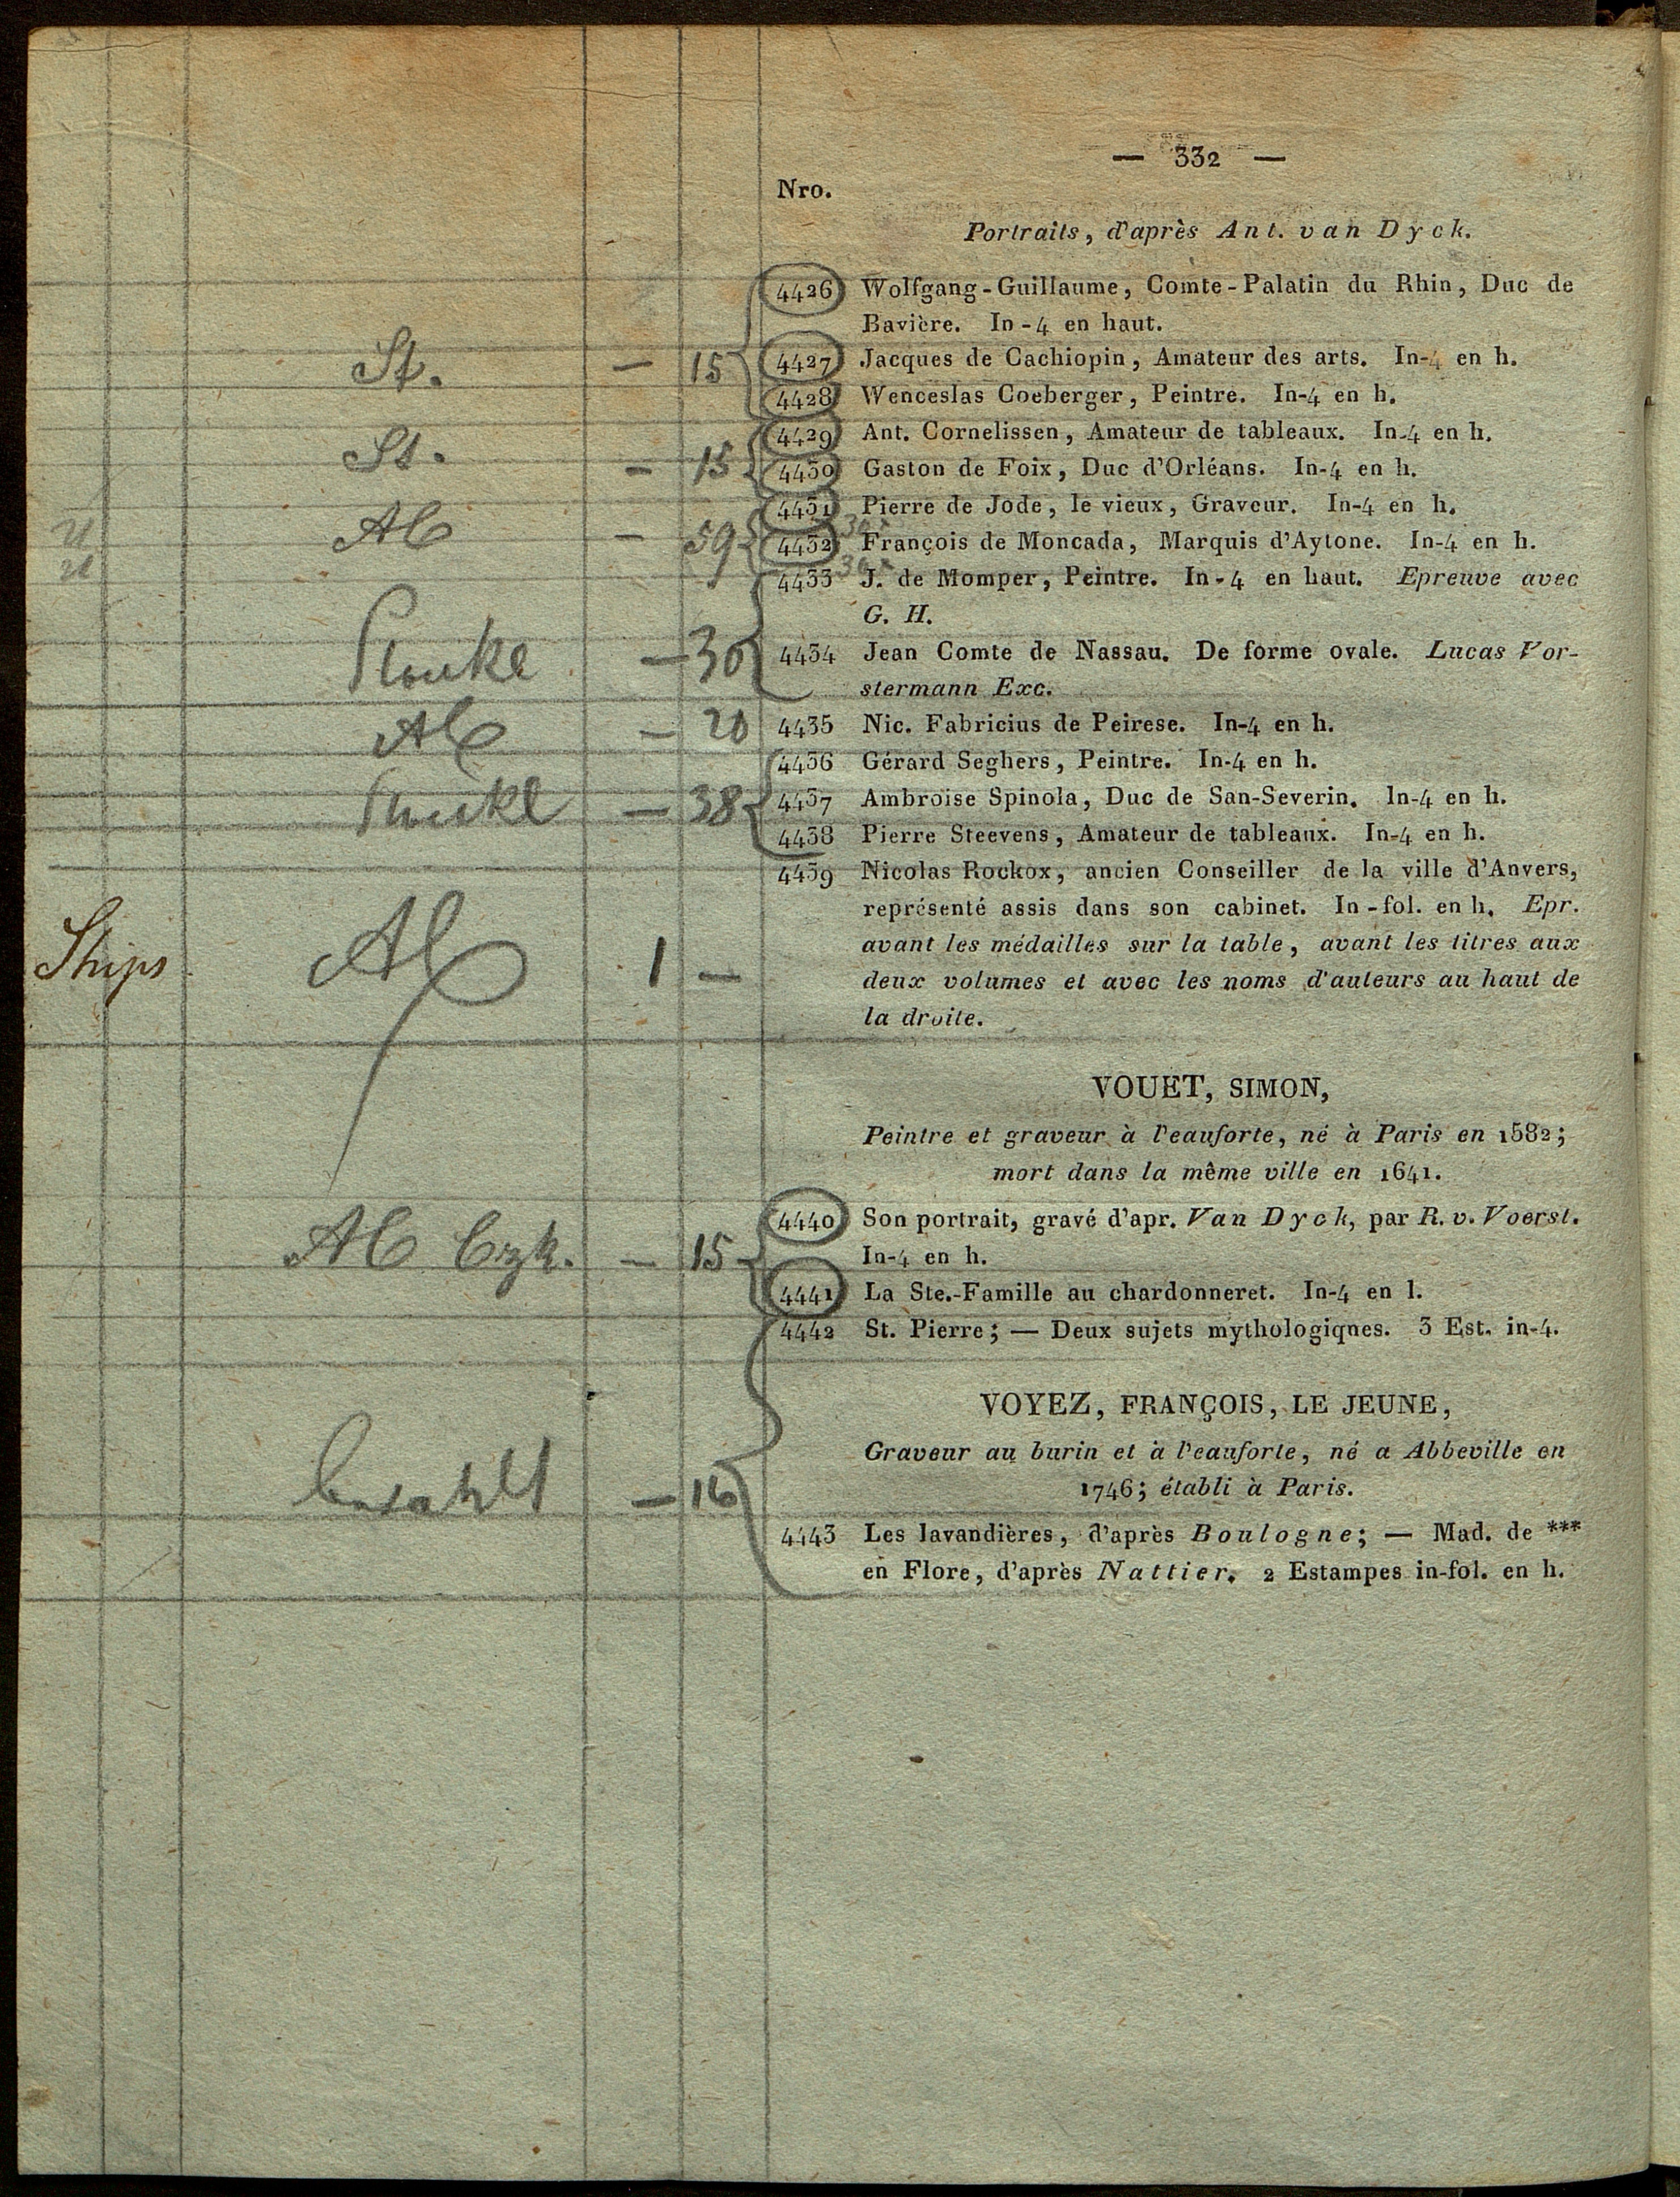 — 332 —
Nro.
Portraits, d'après Ant. van Dyck.
4426 Wolfgang-Guillaume, Comte-Palatin du Rhin, Duc de
Bavière. In-4 en haut.
St. — 15 4427 Jacques de Cachiopin, Amateur des arts. In-4 en h.
4428 Wenceslas Coeberger, Peintre. In-4 en h.
4429 Ant. Cornelissen, Amateur de tableaux. In-4 en h.
St. — 15 4430 Gaston de Foix, Duc d'Orléans. In-4 en h.
4431 Pierre de Jode, le vieux, Graveur. In-4 en h.
AC — 59 4432 François de Moncada, Marquis d'Aytone. In-4 en h.
4433 J. de Momper, Peintre. In-4 en haut. Epreuve avec
G. H.
— 30 4434 Jean Comte de Nassau. De forme ovale. Lucas Vor-
stermann Exc.
AC — 20 4435 Nic. Fabricius de Peirese. In-4 en h.
4436 Gérard Seghers, Peintre. In-4 en h.
— 38 4437 Ambroise Spinola, Duc de San-Severin. In-4 en h.
4438 Pierre Steevens, Amateur de tableaux. In-4 en h.
4439 Nicolas Rockox, ancien Conseiller de la ville d'Anvers,
représenté assis dans son cabinet. In-fol. en h. Epr.
avant les médailles sur la table, avant les titres aux
AC 1 — deux volumes et avec les noms d'auteurs au haut de
la droite.
VOUET, SIMON,
Peintre et graveur à l'eauforte, né à Paris en 1582;
mort dans la même ville en 1641.
4440 Son portrait, gravé d'apr. Van Dyck, par R. v. Voerst.
AC — 15 In-4 en h.
4441 La Ste.-Famille au chardonneret. In-4 en l.
4442 St. Pierre; — Deux sujets mythologiqnes. 3 Est. in-4.
VOYEZ, FRANÇOIS, LE JEUNE,
Graveur au burin et à l'eauforte, né a Abbeville en
— 16 1746; établi à Paris.
4443 Les lavandières, d'après Boulogne; — Mad. de ***
en Flore, d'après Nattier. 2 Estampes in-fol. en h.